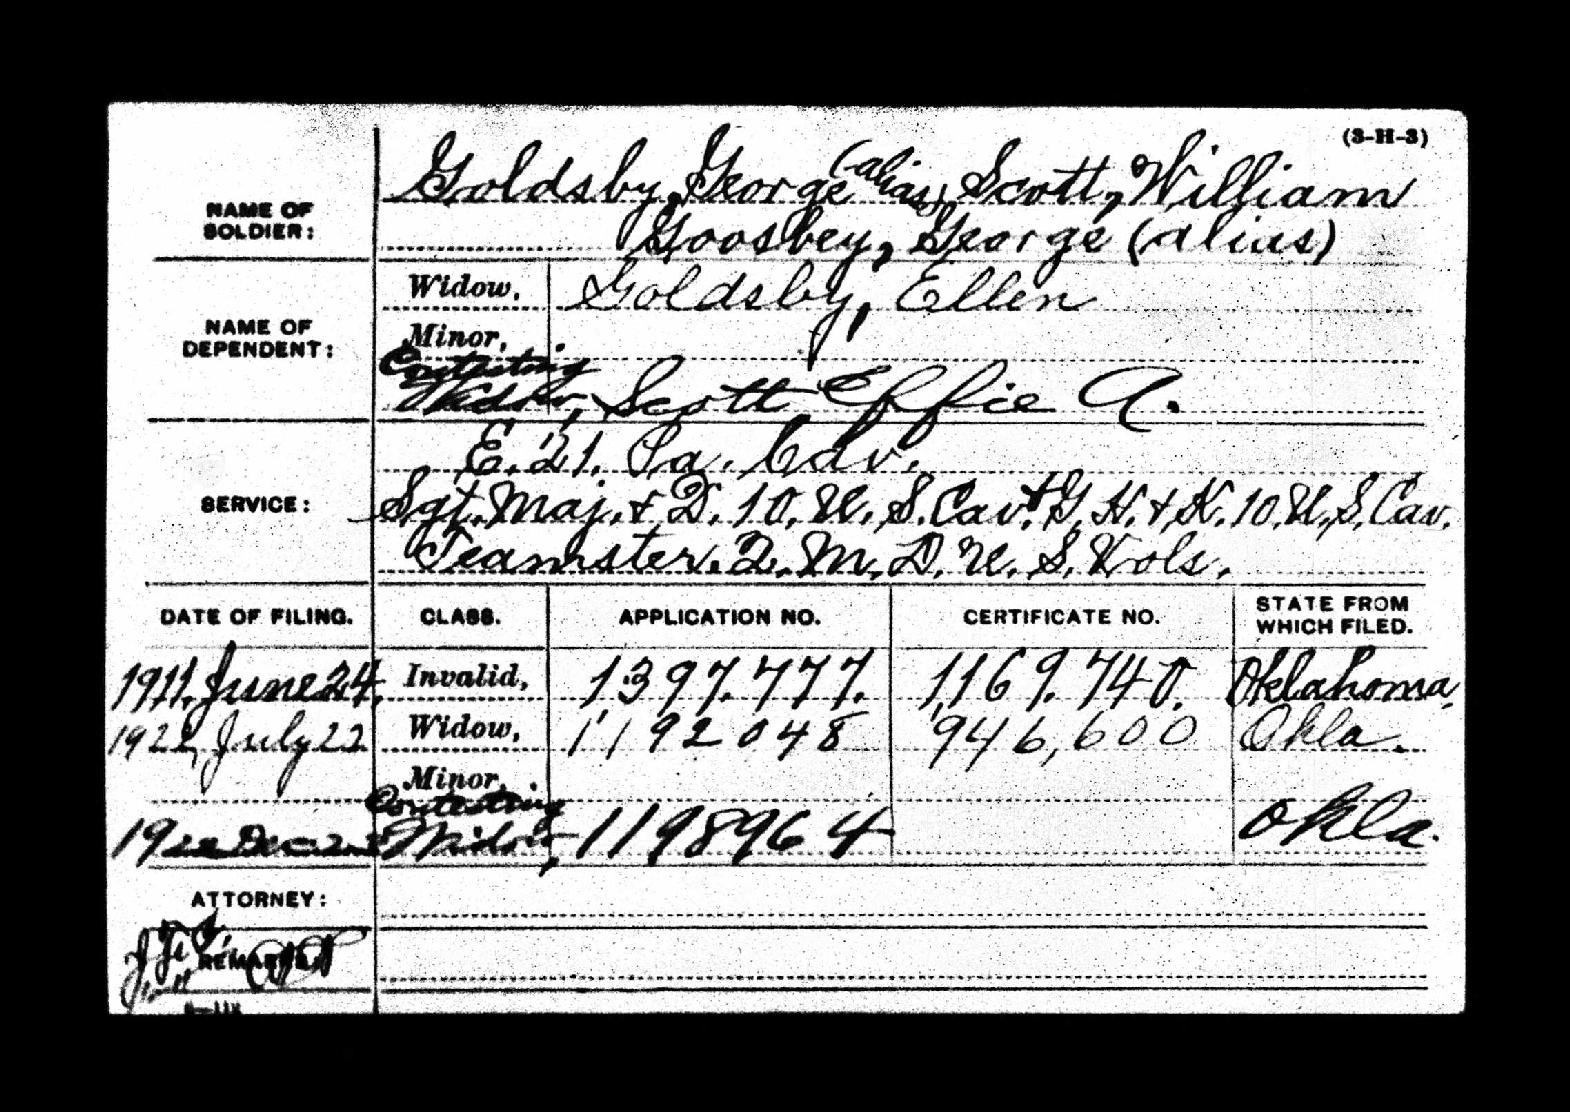 (3-H-3)
NAME OF SOLDIER: Goldsby, George (alias) Scott, William
Goosbey, George (alias)
NAME OF DEPENDENT: Widow, Goldsby, Ellen
Minor,
Contesting Widow, Scott Effie A.
SERVICE: E. 21. Pa. Cav.
Sgt. Maj. & D. 10. U. S. Cav. & G. H. & K. 10. U. S. Cav.
Teamster. Q. M. D. U. S. Vols.
DATE OF FILING. CLASS. APPLICATION NO. CERTIFICATE NO. STATE FROM WHICH FILED.
1911. June 24. Invalid, 1397.777. 1,169.740. Oklahoma.
1922, July 22 Widow, 1192048 946,600 Okla.
Minor,
1922 Dec. Contesting Widow, 1198964 Okla.
ATTORNEY:
REMARKS: